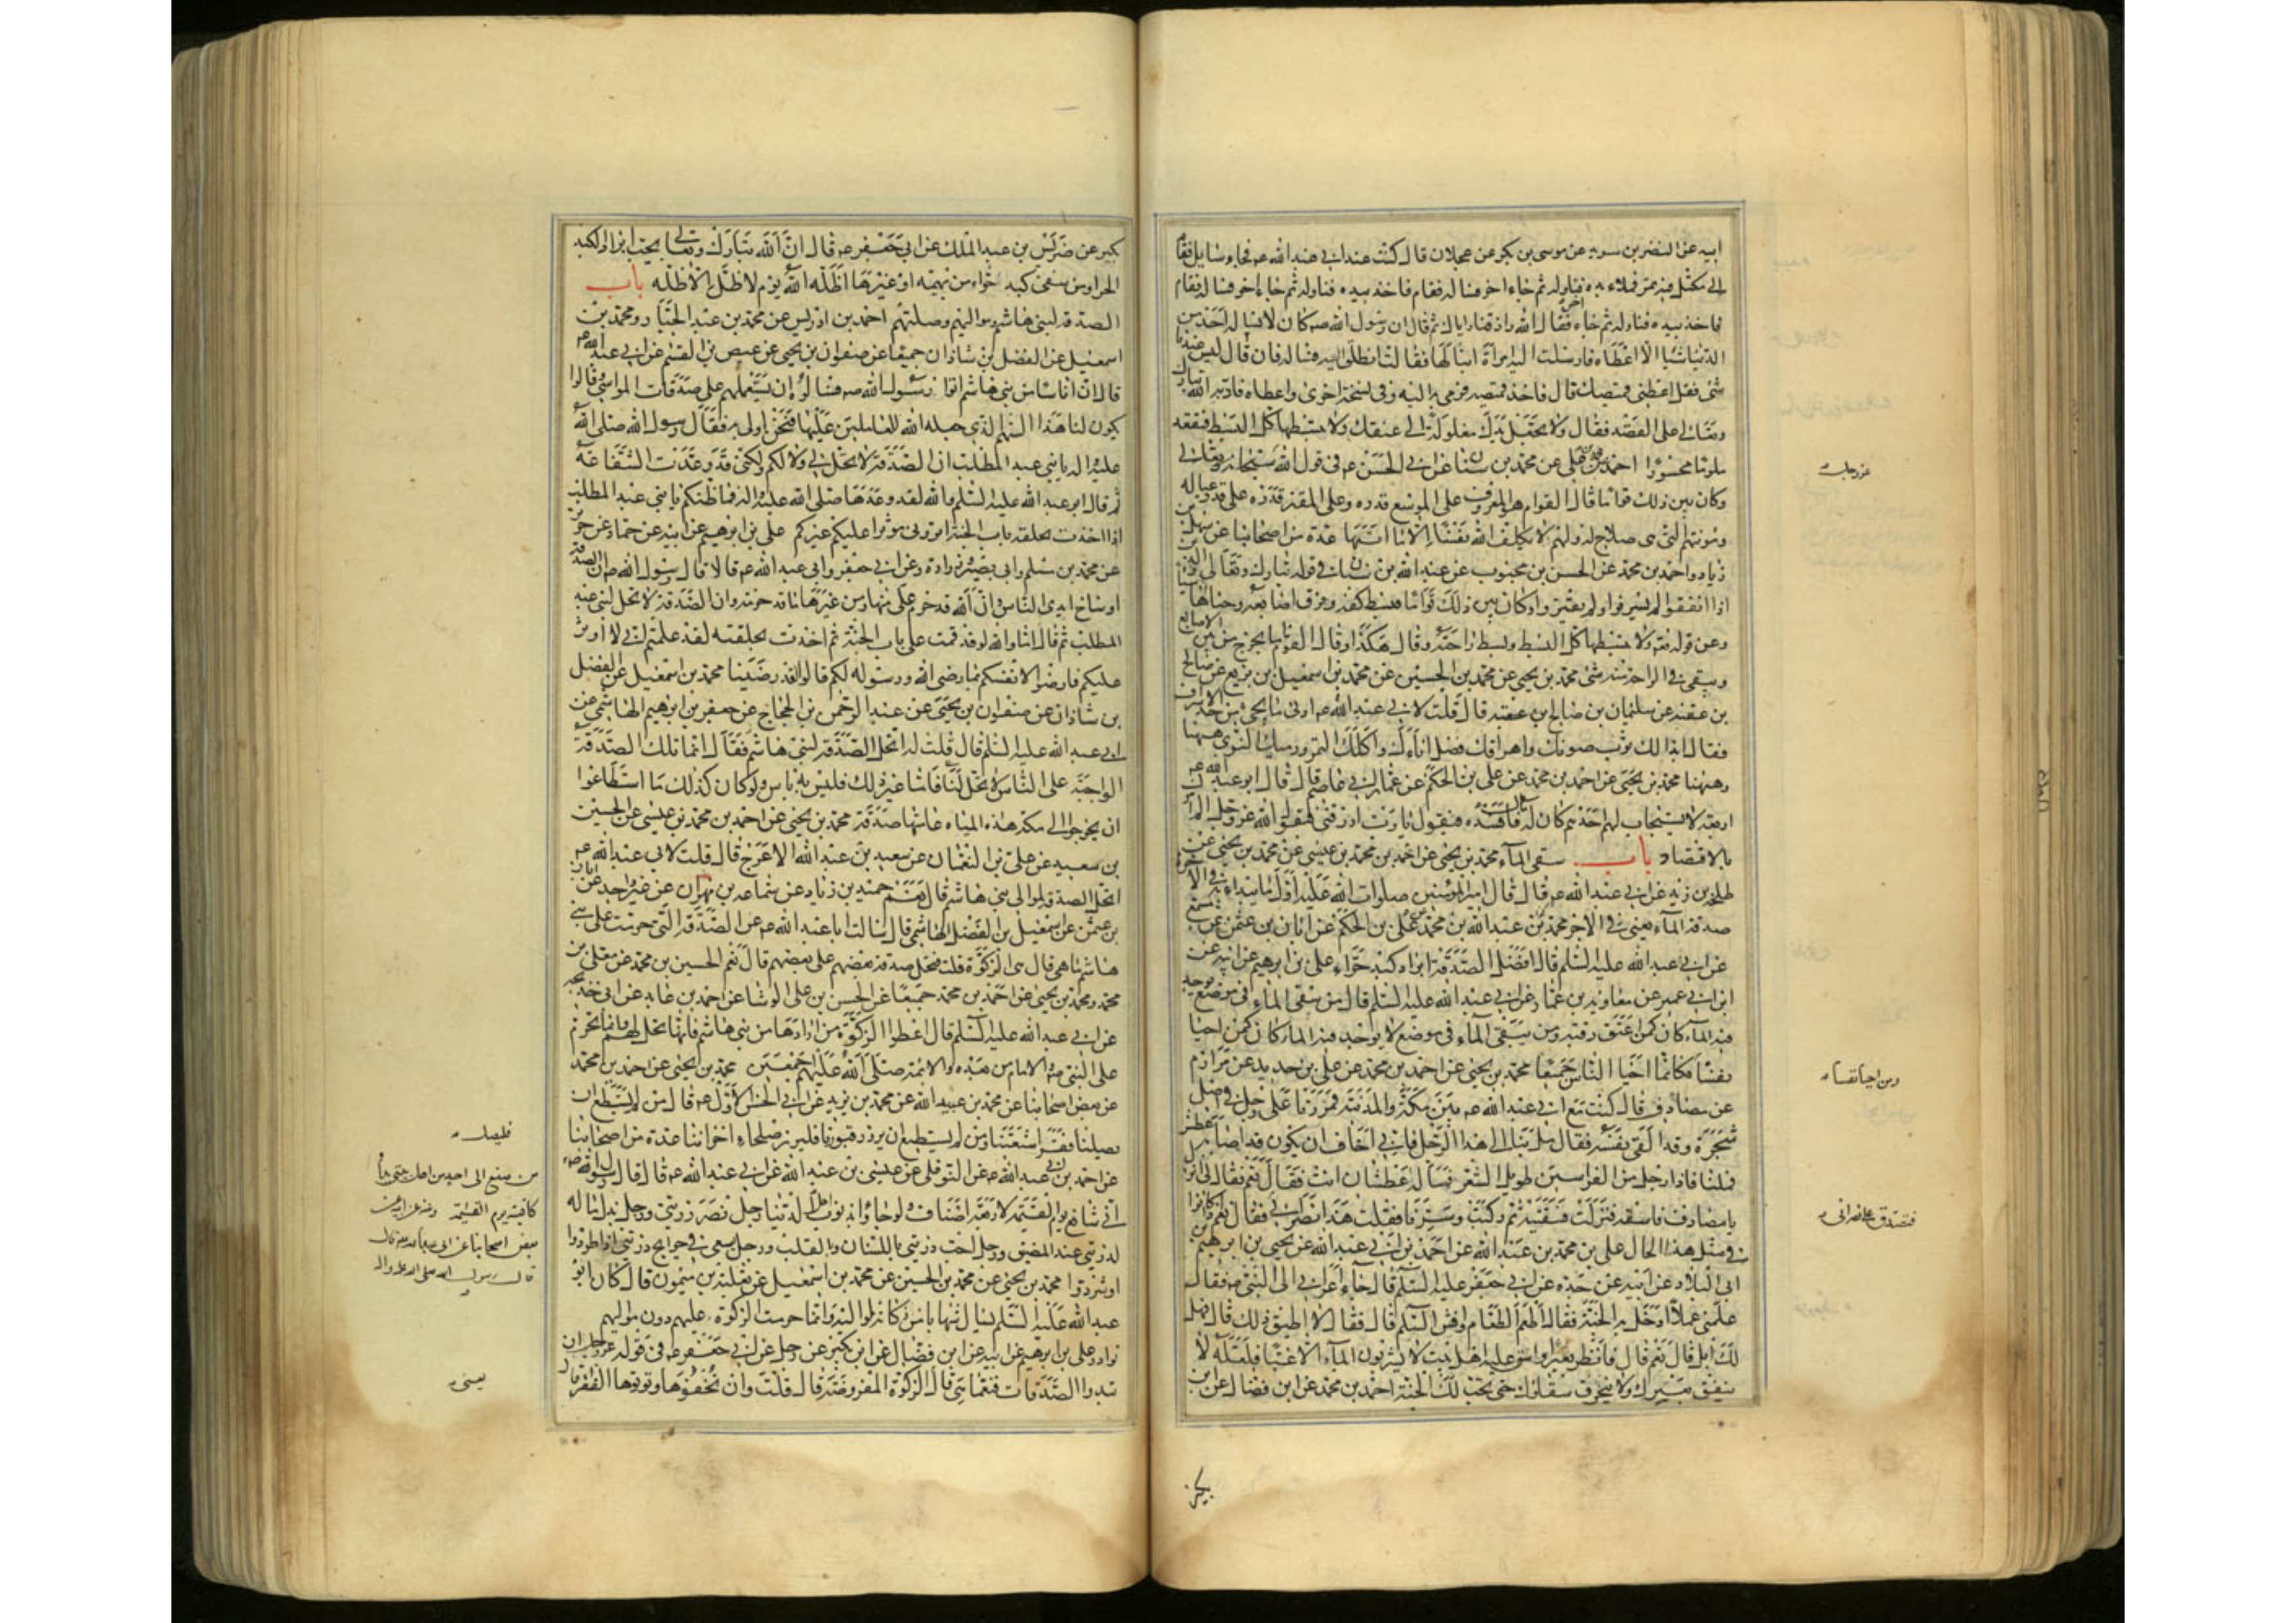 ابيه عن النضر بن سويد عن موسى بن بكر عن عجلان قال كنت عند ابى عبد الله عم فجاء سايل فقام
الى مكتل فيه تمر فملاء يده فناوله ثم جاء اخر فساله فقام فاخذ بيده فناوله ثم جاء اخر فساله فقام
فاخذ بيده فناوله ثم جاء اخر فقال الله رازقنا واياك ثم قال ان رسول الله صم كان لا يساله احد من
الدنيا شيئا الا اعطاه فارسلت اليه امراة ابنا لها فقالت انطلق اليه فساله فان قال ليس عندنا
شئ فقل اعطنى قميصك قال فاخذ قميصه فرمى به اليه وفى نسخة اخرى واعطاه فادبه الله تبارك
وتعالى على القصد فقال ولا تجعل يدك مغلولة الى عنقك ولا تبسطها كل البسط فتقعد
ملوما محسورا احمد بن محمد بن على عن محمد بن سنان عن ابى الحسن عم فى قول الله سبحانه وتعالى
وكان بين ذلك قواما قال القوام هو المعروف على الموسع قدره وعلى المقتر قدره على قدر عياله
ومؤنتهم التى هى صلاح له ولهم لا يكلف الله نفسا الا ما اتيها عدة من اصحابنا عن سهل بن
زياد واحمد بن محمد عن الحسن بن محبوب عن عبد الله بن سنان فى قوله تبارك وتعالى والذين
اذا انفقوا لم يسرفوا ولم يقتروا وكان بين ذلك قواما فبسط كفه وفرق اصابعه وحناها شيئا
وعن قوله تعم ولا تبسطها كل البسط وبسط راحته وقال هكذا وقال القوام ما يخرج من بين الاصابع
ويبقى فى الراحة منه شئ محمد بن يحيى عن محمد بن الحسين عن محمد بن اسمعيل بن بزيع عن صالح
بن عقبه عن سليمان بن صالح بن عقبه قال قلت لابى عبد الله عم ادنى ما يجئ من حد الاسراف
فقال ابذالك ثوب صونك واهراقك فضل اناءك واكلك التمر ورميك النوى ههنا
وههنا محمد بن يحيى عن احمد بن محمد عن على بن الحكم عن عمار بن ابى عاصم قال قال ابو عبد الله عم
اربعة لا يستجاب لهم احدهم كان له مال فافسده فيقول يا رب ارزقنى فيقول الله عز وجل الم امرك
بالاقتصاد باب سقى الماء محمد بن يحيى عن احمد بن محمد بن عيسى عن محمد بن يحيى عن
طلحة بن زيد عن ابى عبد الله عم قال قال امير المؤمنين صلوات الله عليه اول ما يبدا به فى الاخرة
صدقة الماء يعنى فى الاجر محمد بن عبد الله بن محمد عن على بن الحكم عن ابان بن عثمن عن مسمع
عن ابى عبد الله عليه السلم قال افضل الصدقة ابراد كبد حراء على بن ابرهيم عن ابيه عن
ابن ابى عمير عن معاوية بن عمار عن ابى عبد الله عليه السلم قال من سقى الماء فى موضع يوجد
فيه الماء كان كمن اعتق رقبة ومن سقى الماء فى موضع لا يوجد فيه الماء كان كمن احيا
نفسا فكانما احيا الناس جميعا محمد بن يحيى عن احمد بن محمد عن على بن حديد عن مرازم
عن مصادف قال كنت مع ابى عبد الله عم بين مكة والمدينة فمررنا على رجل فى اصل
شجرة وقد القى بنفسه فقال مل بنا الى هذا الرجل فانى اخاف ان يكون قد اصابه عطش
فملنا فاذا رجل من الفراسين طويل الشعر فساله عطشان انت فقال نعم فقال لى انزل
يا مصادف فاسقه فنزلت فسقيته ثم ركبت وسرنا فقلت هذا نصرانى فقال نعم اذا كانوا
فى مثل هذا الحال على بن محمد بن عبد الله عن احمد بن ابى عبد الله عن يحيى بن ابرهيم بن
ابى البلاد عن ابيه عن جده عن ابى جعفر عليه السلم قال جاء اعرابى الى النبى صم فقال
علمنى عملا ادخل به الجنة فقال اطعم الطعام وافش السلم قال فقال لا اطيق ذلك قال فهل
لك ابل قال نعم قال فانظر بعيرا واسق عليه اهل بيت لا يشربون الماء الا غبا فلعله لا
ينفق بعيرك ولا ينخرق سقاؤك حتى تجب لك الجنة احمد بن محمد عن ابن فضال عن ابن
بكير
عز وجل
ومن احيا نفسا
فتصدق على نصرانى
بكير عن ضريس بن عبد الملك عن ابى جعفر عم قال ان الله تبارك وتعالى يحب ابراد الكبد
الحرا ومن سقى كبد حراء من بهيمة او غيرها اظله الله يوم لا ظل الا ظله باب
الصدقة لبنى هاشم ومواليهم وصلتهم احمد بن ادريس عن محمد بن عبد الجبار ومحمد بن
اسمعيل عن الفضل بن شاذان جميعا عن صفوان بن يحيى عن عيص بن القسم عن ابى عبد الله عم
قال ان اناسا من بنى هاشم اتوا رسول الله صم فسالوه ان يستعملهم على صدقات المواشى قالوا
يكون لنا هذا السهم الذى جعله الله للعاملين عليها فنحن اولى به فقال رسول الله صلى الله
عليه واله يا بنى عبد المطلب ان الصدقة لا تحل لى ولا لكم ولكنى قد وعدت الشفاعة
ثم قال ابو عبد الله عليه السلم والله لقد وعدها صلى الله عليه واله فما ظنكم يا بنى عبد المطلب
اذا اخذت بحلقة باب الجنة اترونى موثرا عليكم غيركم على بن ابرهيم عن ابيه عن حماد عن حريز
عن محمد بن مسلم وابى بصير وزرارة عن ابى جعفر وابى عبد الله عم قالا قال رسول الله صم ان الصدقة
اوساخ ايدى الناس وان الله قد حرم على منها ومن غيرها ما قد حرمه وان الصدقة لا تحل لبنى عبد
المطلب ثم قال اما والله لو قد قمت على باب الجنة ثم اخذت بحلقته لقد علمتم انى لا اوثر
عليكم فارضوا لانفسكم بما رضى الله ورسوله لكم قالوا قد رضينا محمد بن اسمعيل عن الفضل
بن شاذان عن صفوان بن يحيى عن عبد الرحمن بن الحجاج عن جعفر بن ابرهيم الهاشمى عن
ابى عبد الله عليه السلم قال قلت له اتحل الصدقة لبنى هاشم فقال انما تلك الصدقة
الواجبة على الناس لا تحل لنا فاما غير ذلك فليس به باس ولو كان كذلك ما استطاعوا
ان يخرجوا الى مكة هذه المياه عامتها صدقة محمد بن يحيى عن احمد بن محمد بن عيسى عن الحسين
بن سعيد عن على بن النعمان عن سعيد بن عبد الله الاعرج قال قلت لابى عبد الله عم
اتحل الصدقة لموالى بنى هاشم قال نعم حميد بن زياد عن سماعة بن مهران عن غير واحد عن ابان
بن عثمن عن اسمعيل بن الفضل الهاشمى قال سالت ابا عبد الله عم عن الصدقة التى حرمت على بنى
هاشم ما هى قال هى الزكوة قلت فتحل صدقة بعضهم على بعضهم قال نعم الحسين بن محمد عن معلى بن
محمد ومحمد بن يحيى عن احمد بن محمد جميعا عن الحسن بن على الوشا عن احمد بن عايذ عن ابى خديجه
عن ابى عبد الله عليه السلم قال اعطوا الزكوة من ارادها من بنى هاشم فانها تحل لهم وانما تحرم
على النبى صم والامام من بعده والائمة صلى الله عليهم اجمعين محمد بن يحيى عن احمد بن محمد
عن بعض اصحابنا عن محمد بن عبيد الله عن محمد بن يزيد عن ابى الحسن الاول عم قال من لم يستطع ان
يصلنا فقراء شيعتنا ومن لم يستطع ان يزور قبورنا فليزر صلحاء اخواننا عدة من اصحابنا
عن احمد بن ابى عبد الله عن النوفلى عن عيسى بن عبد الله عن ابى عبد الله عم قال قال رسول الله صم
انى شافع يوم القيمة لاربعة اصناف ولو جاؤا بذنوب اهل الدنيا رجل نصر ذريتى ورجل بذل ماله
لذريتى عند المضيق ورجل احب ذريتى باللسان وبالقلب ورجل سعى فى حوايج ذريتى اذا طردوا
او شردوا محمد بن يحيى عن محمد بن الحسين عن محمد بن اسمعيل عن ثعلبة بن ميمون قال كان ابو
عبد الله عليه السلم يسال شهابا من زكاته لمواليه وانما حرمت الزكوة عليهم دون مواليهم
نوادر على بن ابرهيم عن ابيه عن ابن فضال عن ابن بكير عن رجل عن ابى جعفر عم فى قوله عز وجل ان
تبدوا الصدقات فنعما هى قال الزكوة المفروضة قال قلت وان تخفوها وتوتوها الفقراء قال
فليصل
من صنع الى احد من اهل بيتى يدا
كافيته يوم القيمة وعنه عن ابيه عن
بعض اصحابنا عن ابى عبد الله عم قال
قال رسول الله صلى الله عليه واله
يعنى